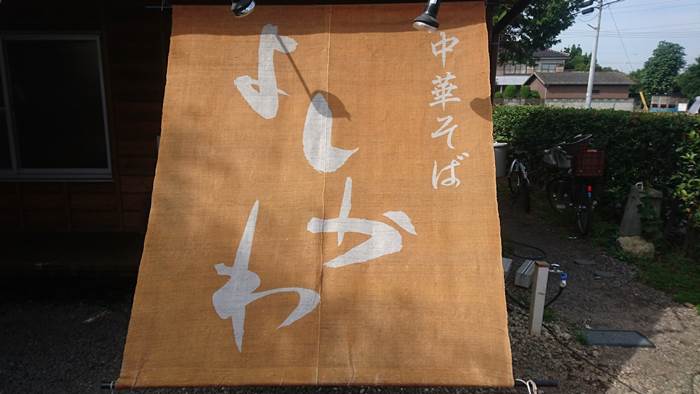 中華そば
よしかわ